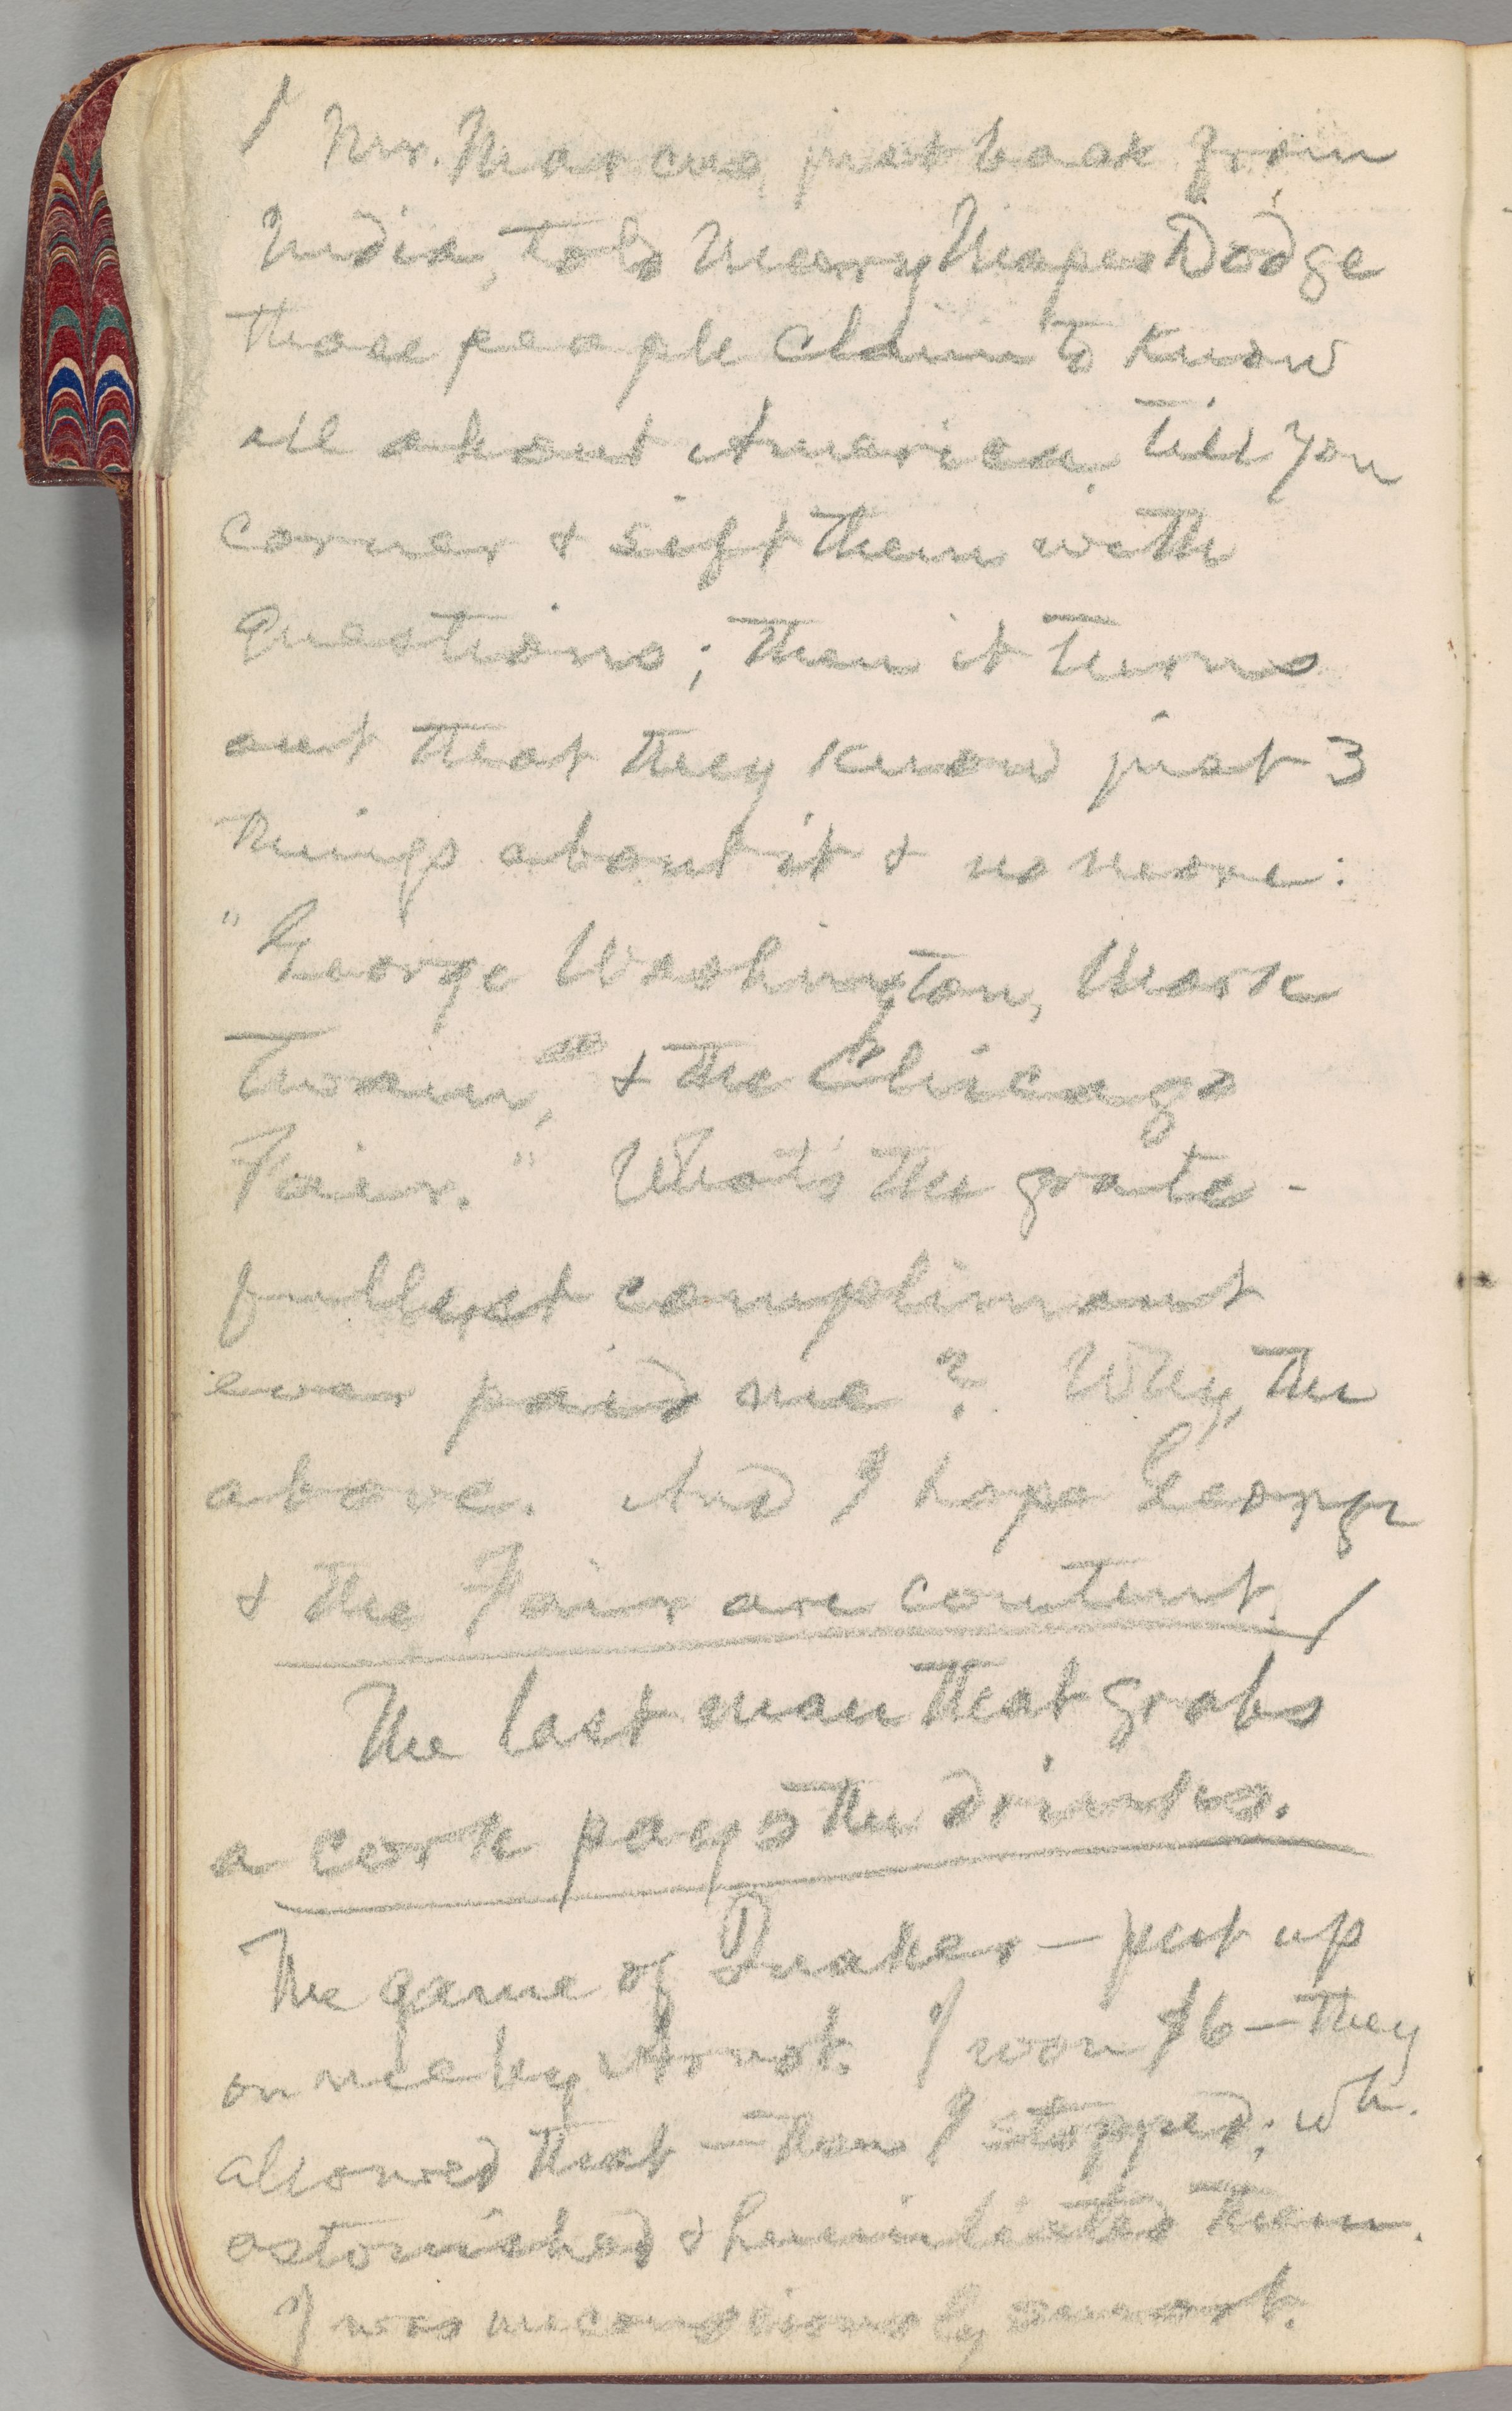 / Mr. Marcus, just back from
India, told Mary Mapes Dodge
those people claim to know
all about America till you
corner & sift them with
questions; then it turns
out that they know just 3
things about it & no more:
"George Washington, Mark
Twain, & the Chicago
Fair." What's the grate-
fullest compliment
ever paid me? Why, the
above. And I hope George
& the Fair are content. /
The last man that grabs
a cork pays the drinks.
The game of Quaker — put up
on me by Arnot. I won $6 — they
allowed that — then I stopped; wh.
astonished & humiliated them.
I was unconsciously smart.